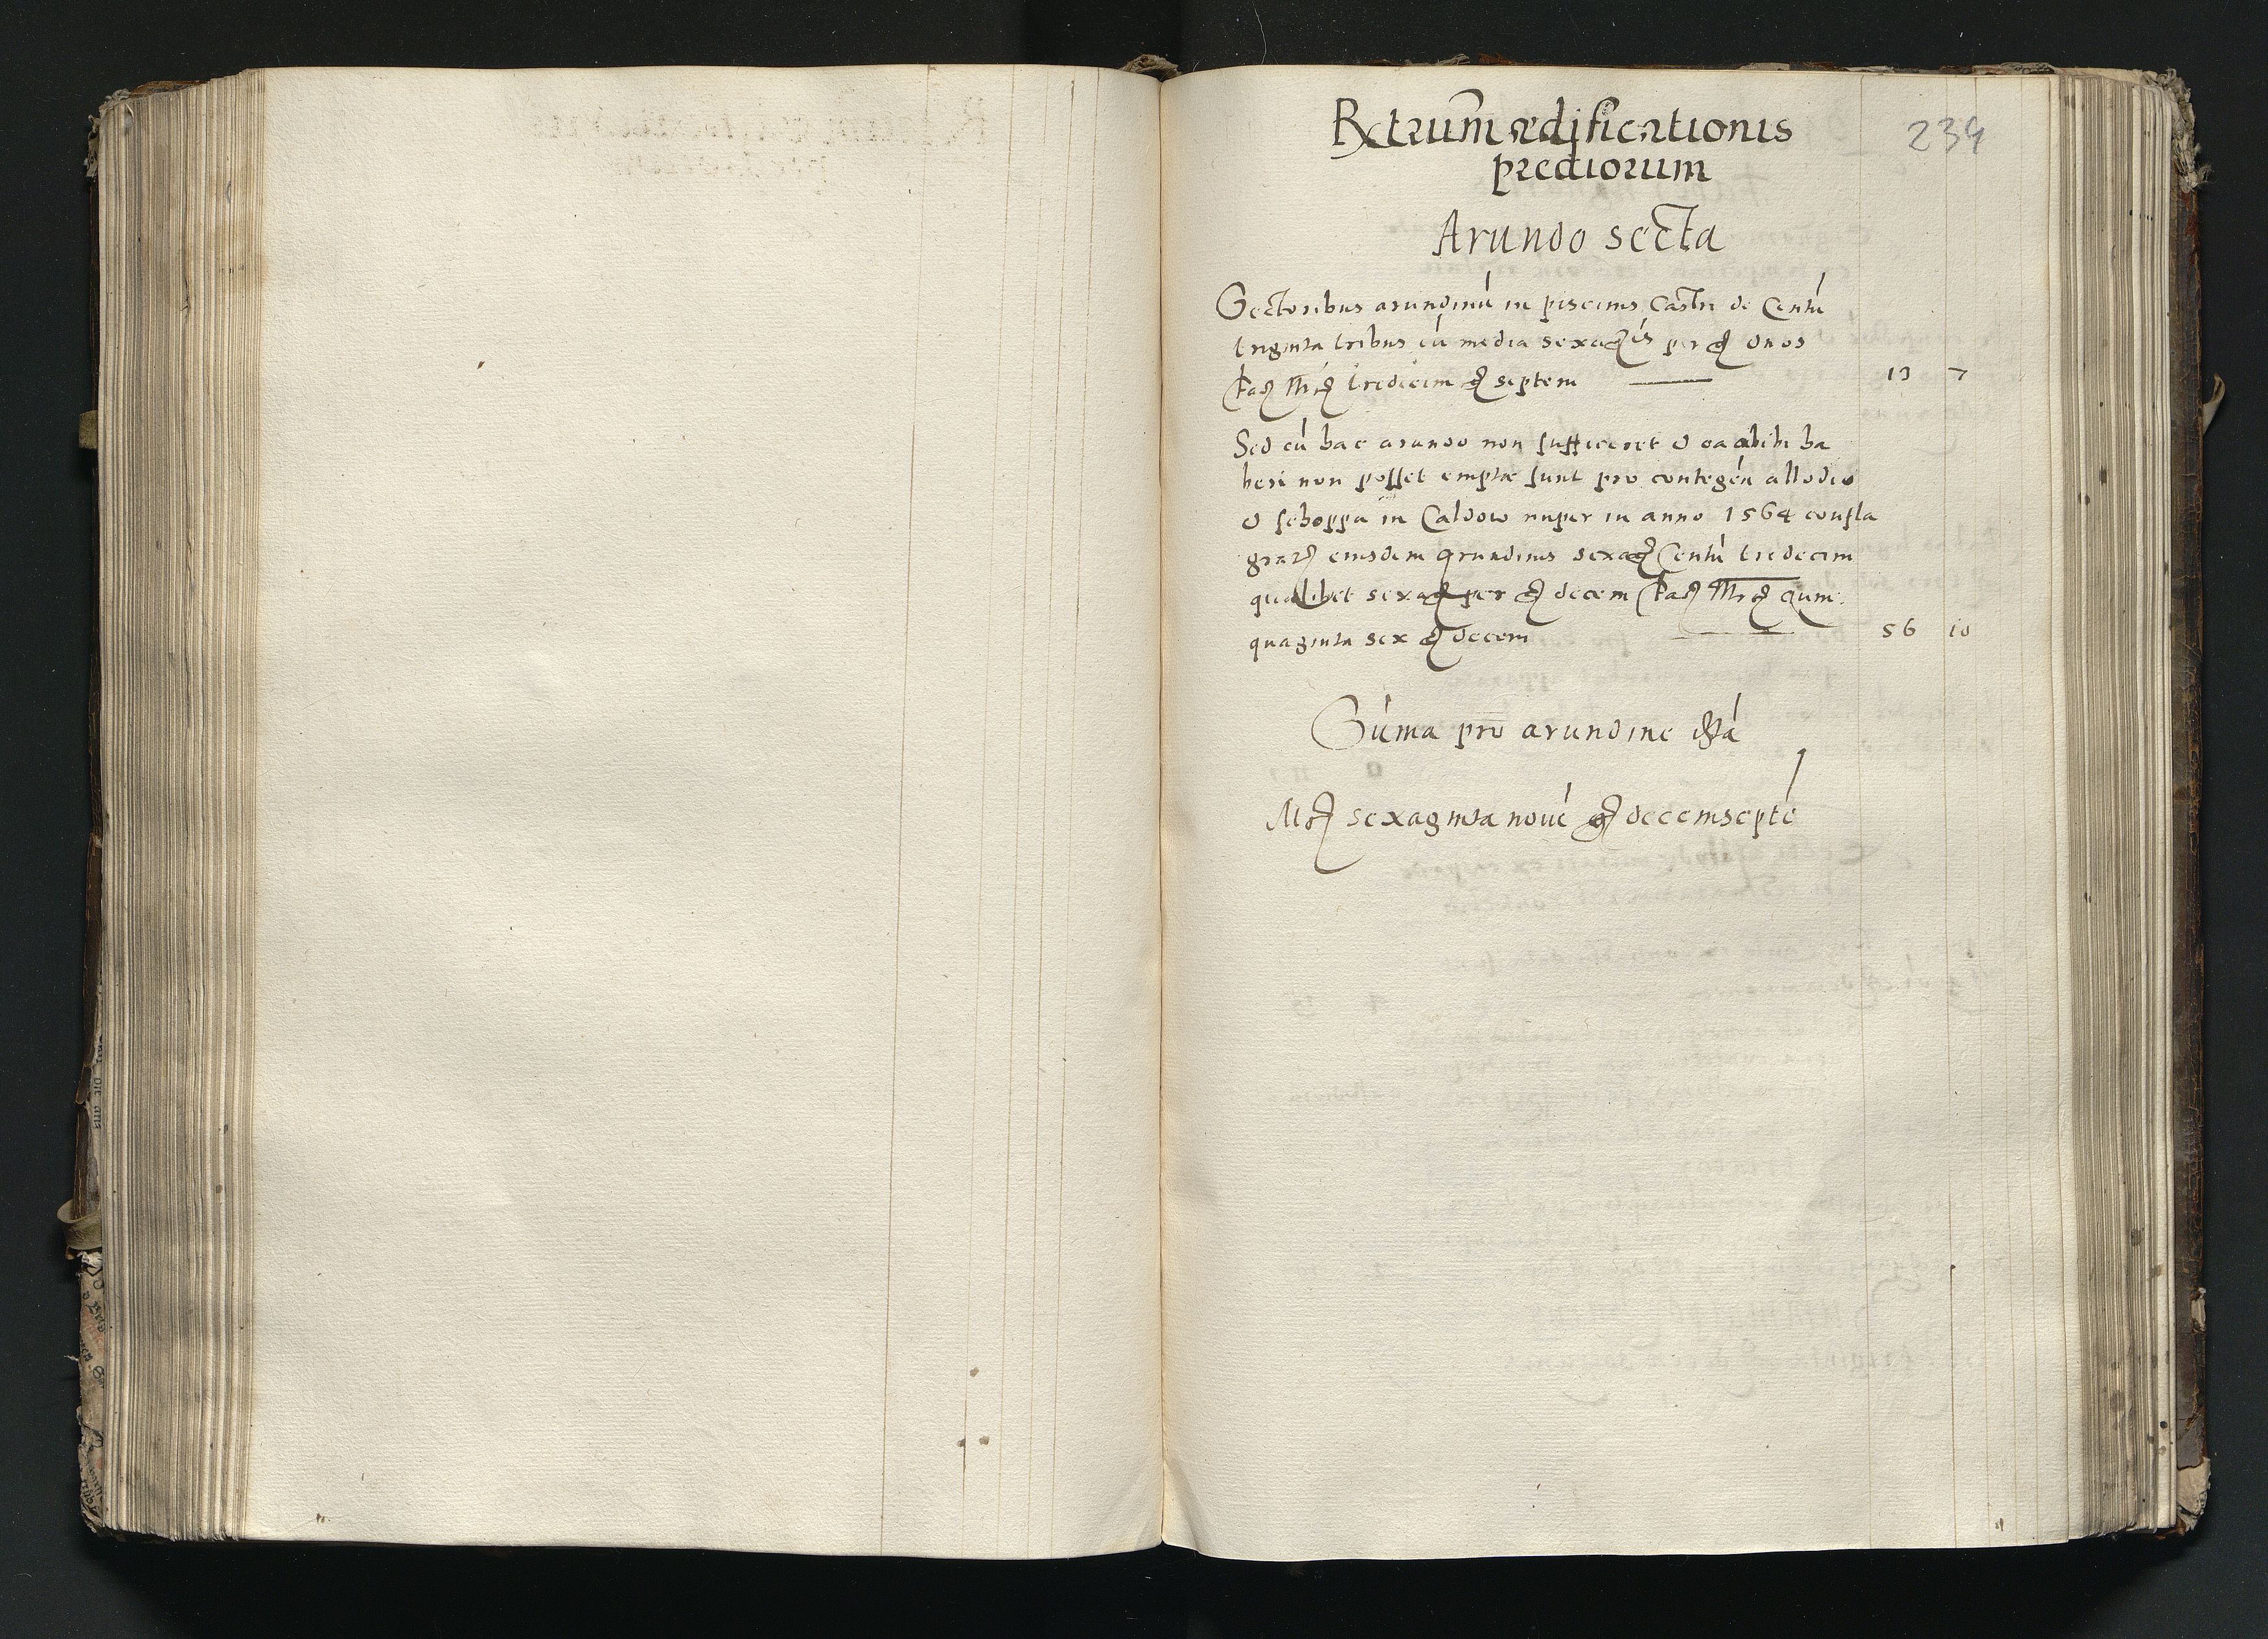 Rectrum ædificationis
prediorum
239
Arundo secta
Sectoribus arundinũ in piscinis Castri de Centũ
triginta tribus cũ media sexagẽis per gr duos
fac Mrc tredecim gr septem 13 7
Sed cũ hac arundo non sufficeret et ea alibi ha
beri non posset emptæ sunt pro contegẽn allodio
et schoppa in Caldow nuper in anno 1564 confla
grat eiusdem arundinis sexag Centũ tredecim
qualibet sexag per gr decem fac Mrc quin
quaginta sex gr decem 56 10
Sũma pro arundine
Mrc sexaginta novẽ gr decemseptẽ